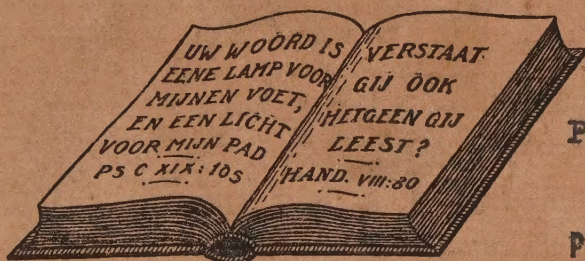 UW WOORD IS
EENE LAMP VOOR
MIJNEN VOET,
EN EEN LICHT
VOOR MIJN PAD
PS C XIX:105
VERSTAAT
GIJ OOK
HETGEEN GIJ
LEEST?
HAND. VIII:30
P
P